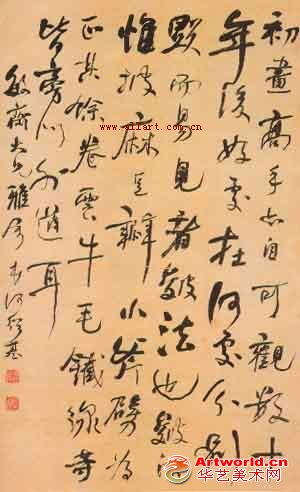 初畫高手亦自可觀數十
年後好處在何處分別
顯而易見者皴法也皴法
惟披麻豆瓣小斧劈為
正其餘卷雲牛毛鐵線等
皆旁門外道耳
齋大兄雅屬 弟何紹基
www.allart.com.cn
Artworld.cn
华艺美术网